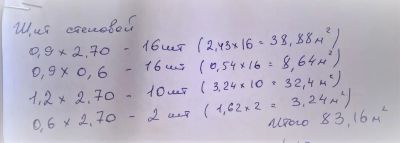 Щит стеновой
0,9 х 2,70 - 16шт (2,43х16 = 38,88м²)
0,9 х 0,6 - 16шт (0,54х16 = 8,64м²)
1,2 х 2,70 - 10шт (3,24х10 = 32,4м²)
0,6 х 2,70 - 2 шт (1,62х2 = 3,24м²)
Итого 83,16м²